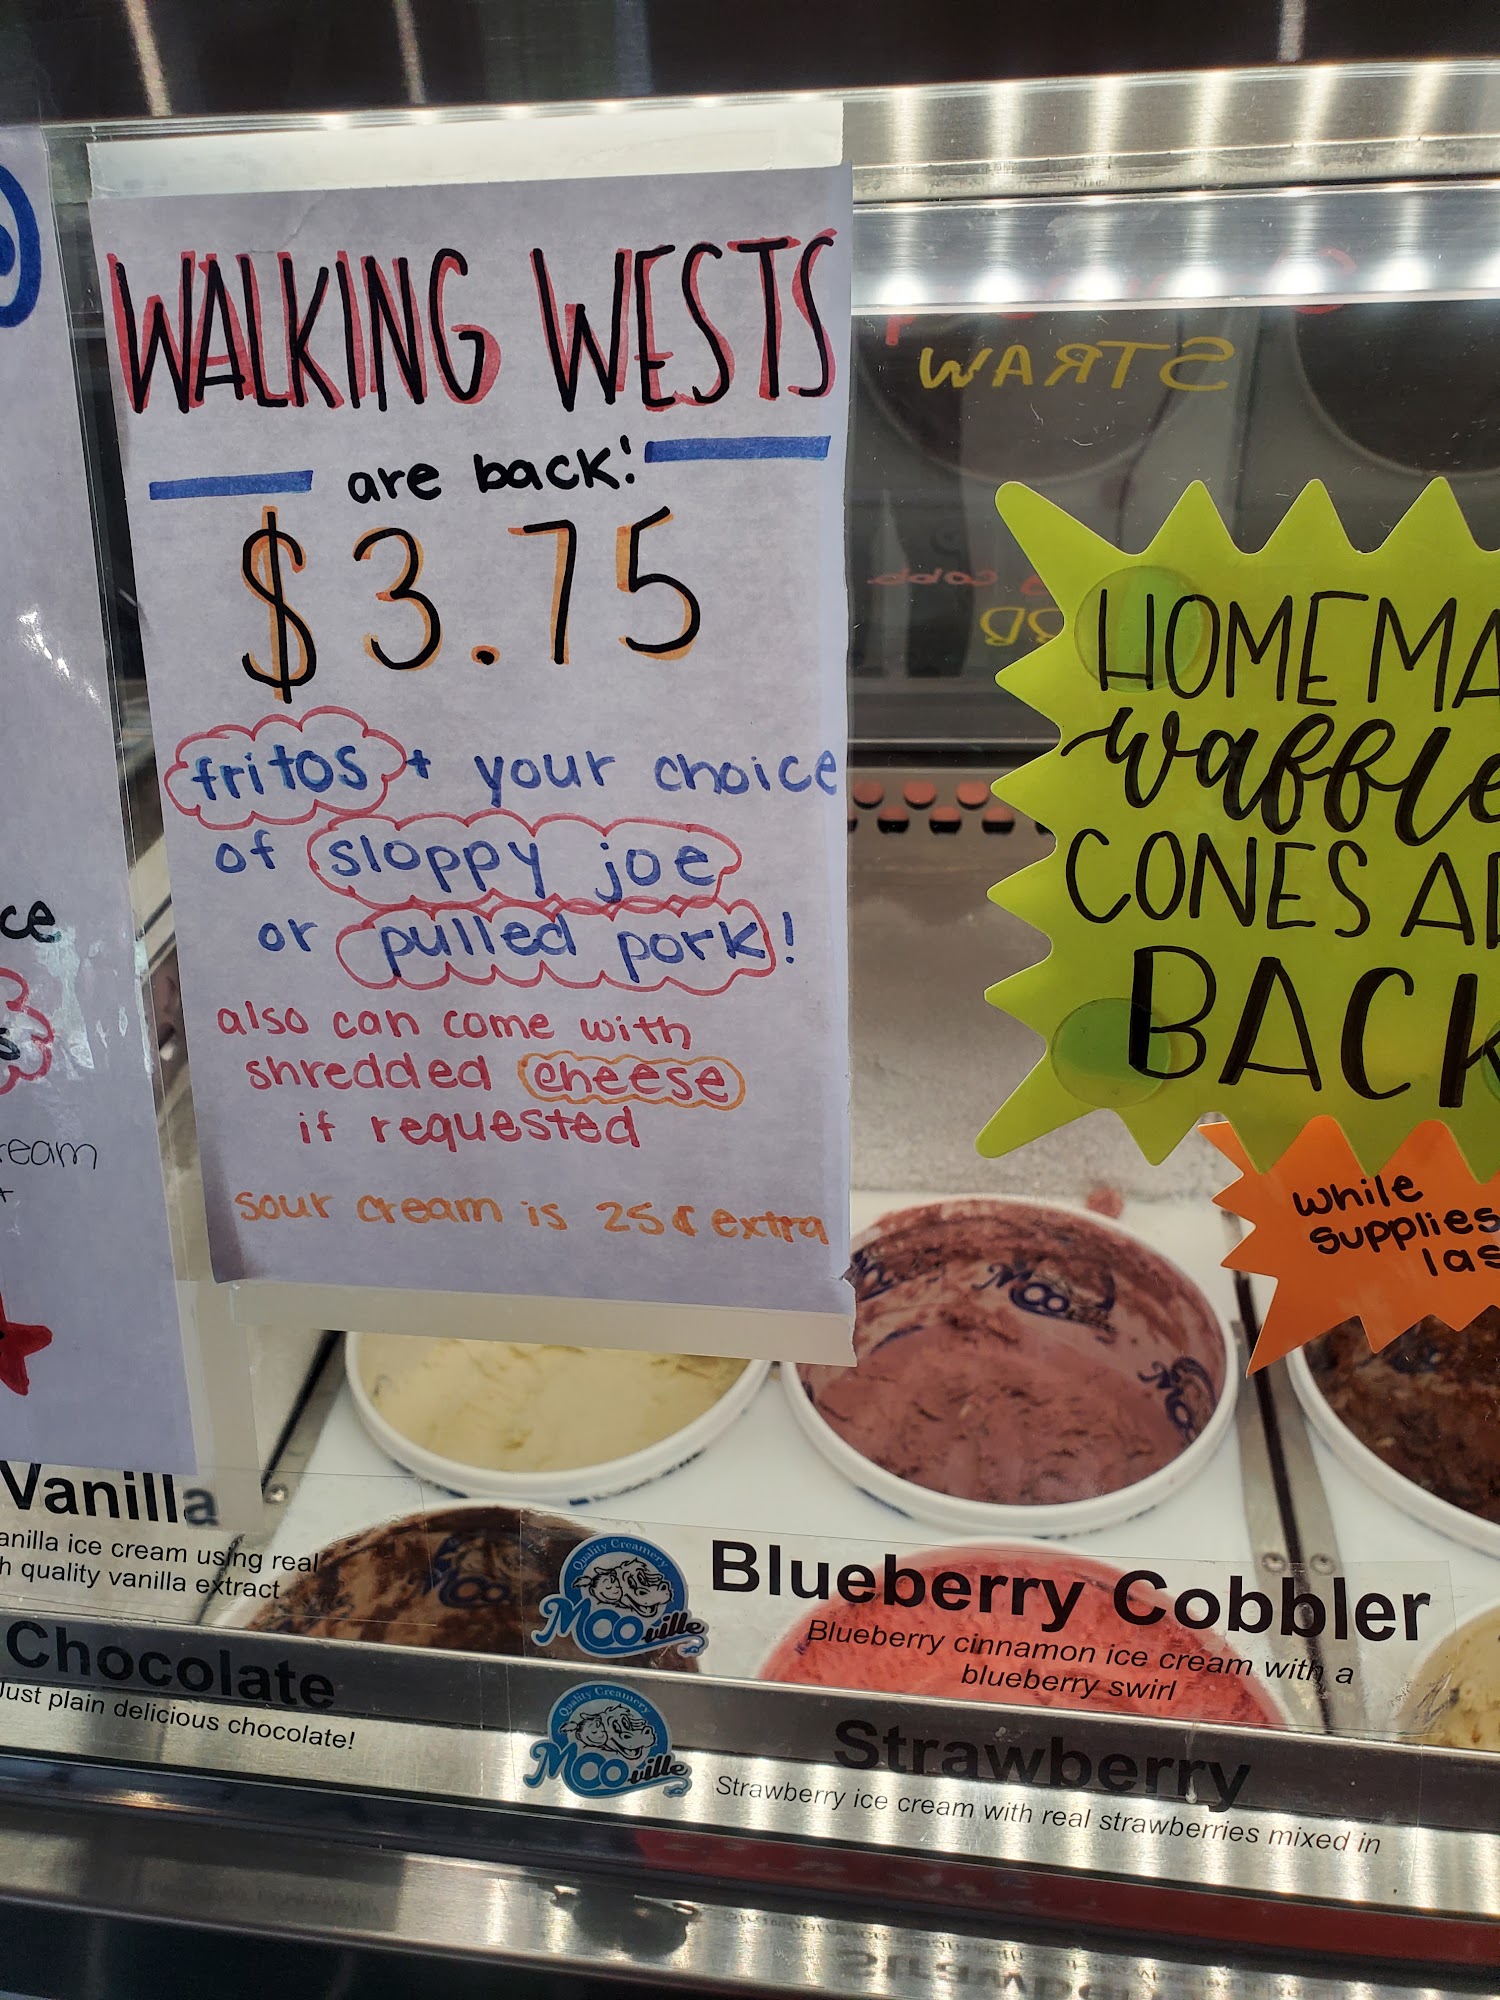 WALKING WESTS
are back!
$3.75
fritos + your choice
of sloppy joe
or pulled pork!
also can come with
shredded cheese
if requested
sour cream is 25¢ extra
STRAW
HOMEMA
waffle
CONES A
BACK
while
supplies
las
ce
s
ream
+
Vanilla
anilla ice cream using real
h quality vanilla extract
Chocolate
Just plain delicious chocolate!
Quality Creamery
MOOville
Blueberry Cobbler
Blueberry cinnamon ice cream with a
blueberry swirl
Quality Creamery
MOOville
Strawberry
Strawberry ice cream with real strawberries mixed in
MOOville
MOO